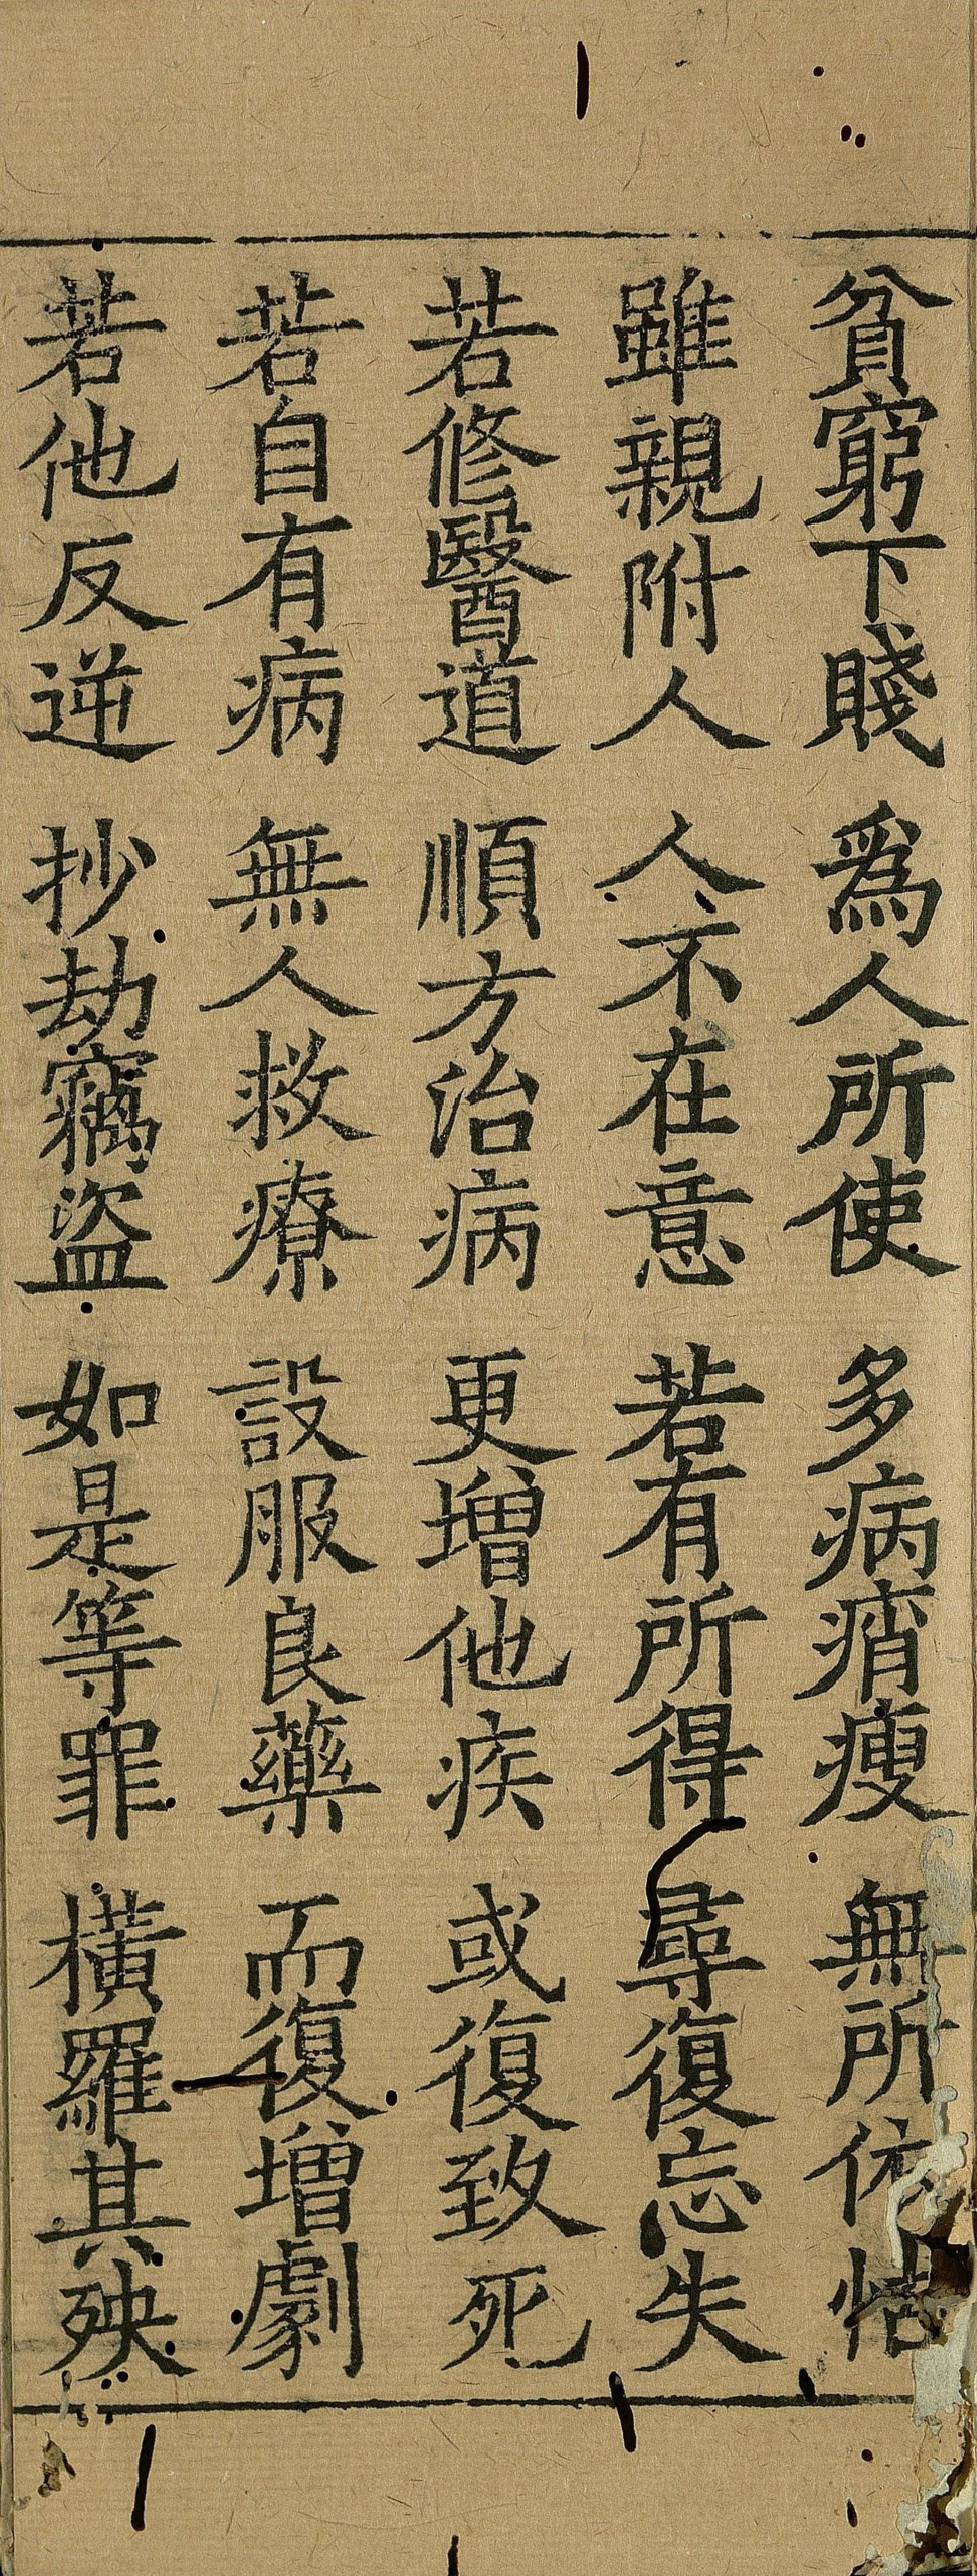 貧窮下賤 為人所使 多病痟瘦 無所依怙
雖親附人 人不在意 若有所得 尋復忘失
若修醫道 順方治病 更增他疾 或復致死
若自有病 無人救療 設服良藥 而復增劇
若他反逆 抄劫竊盜 如是等罪 橫羅其殃